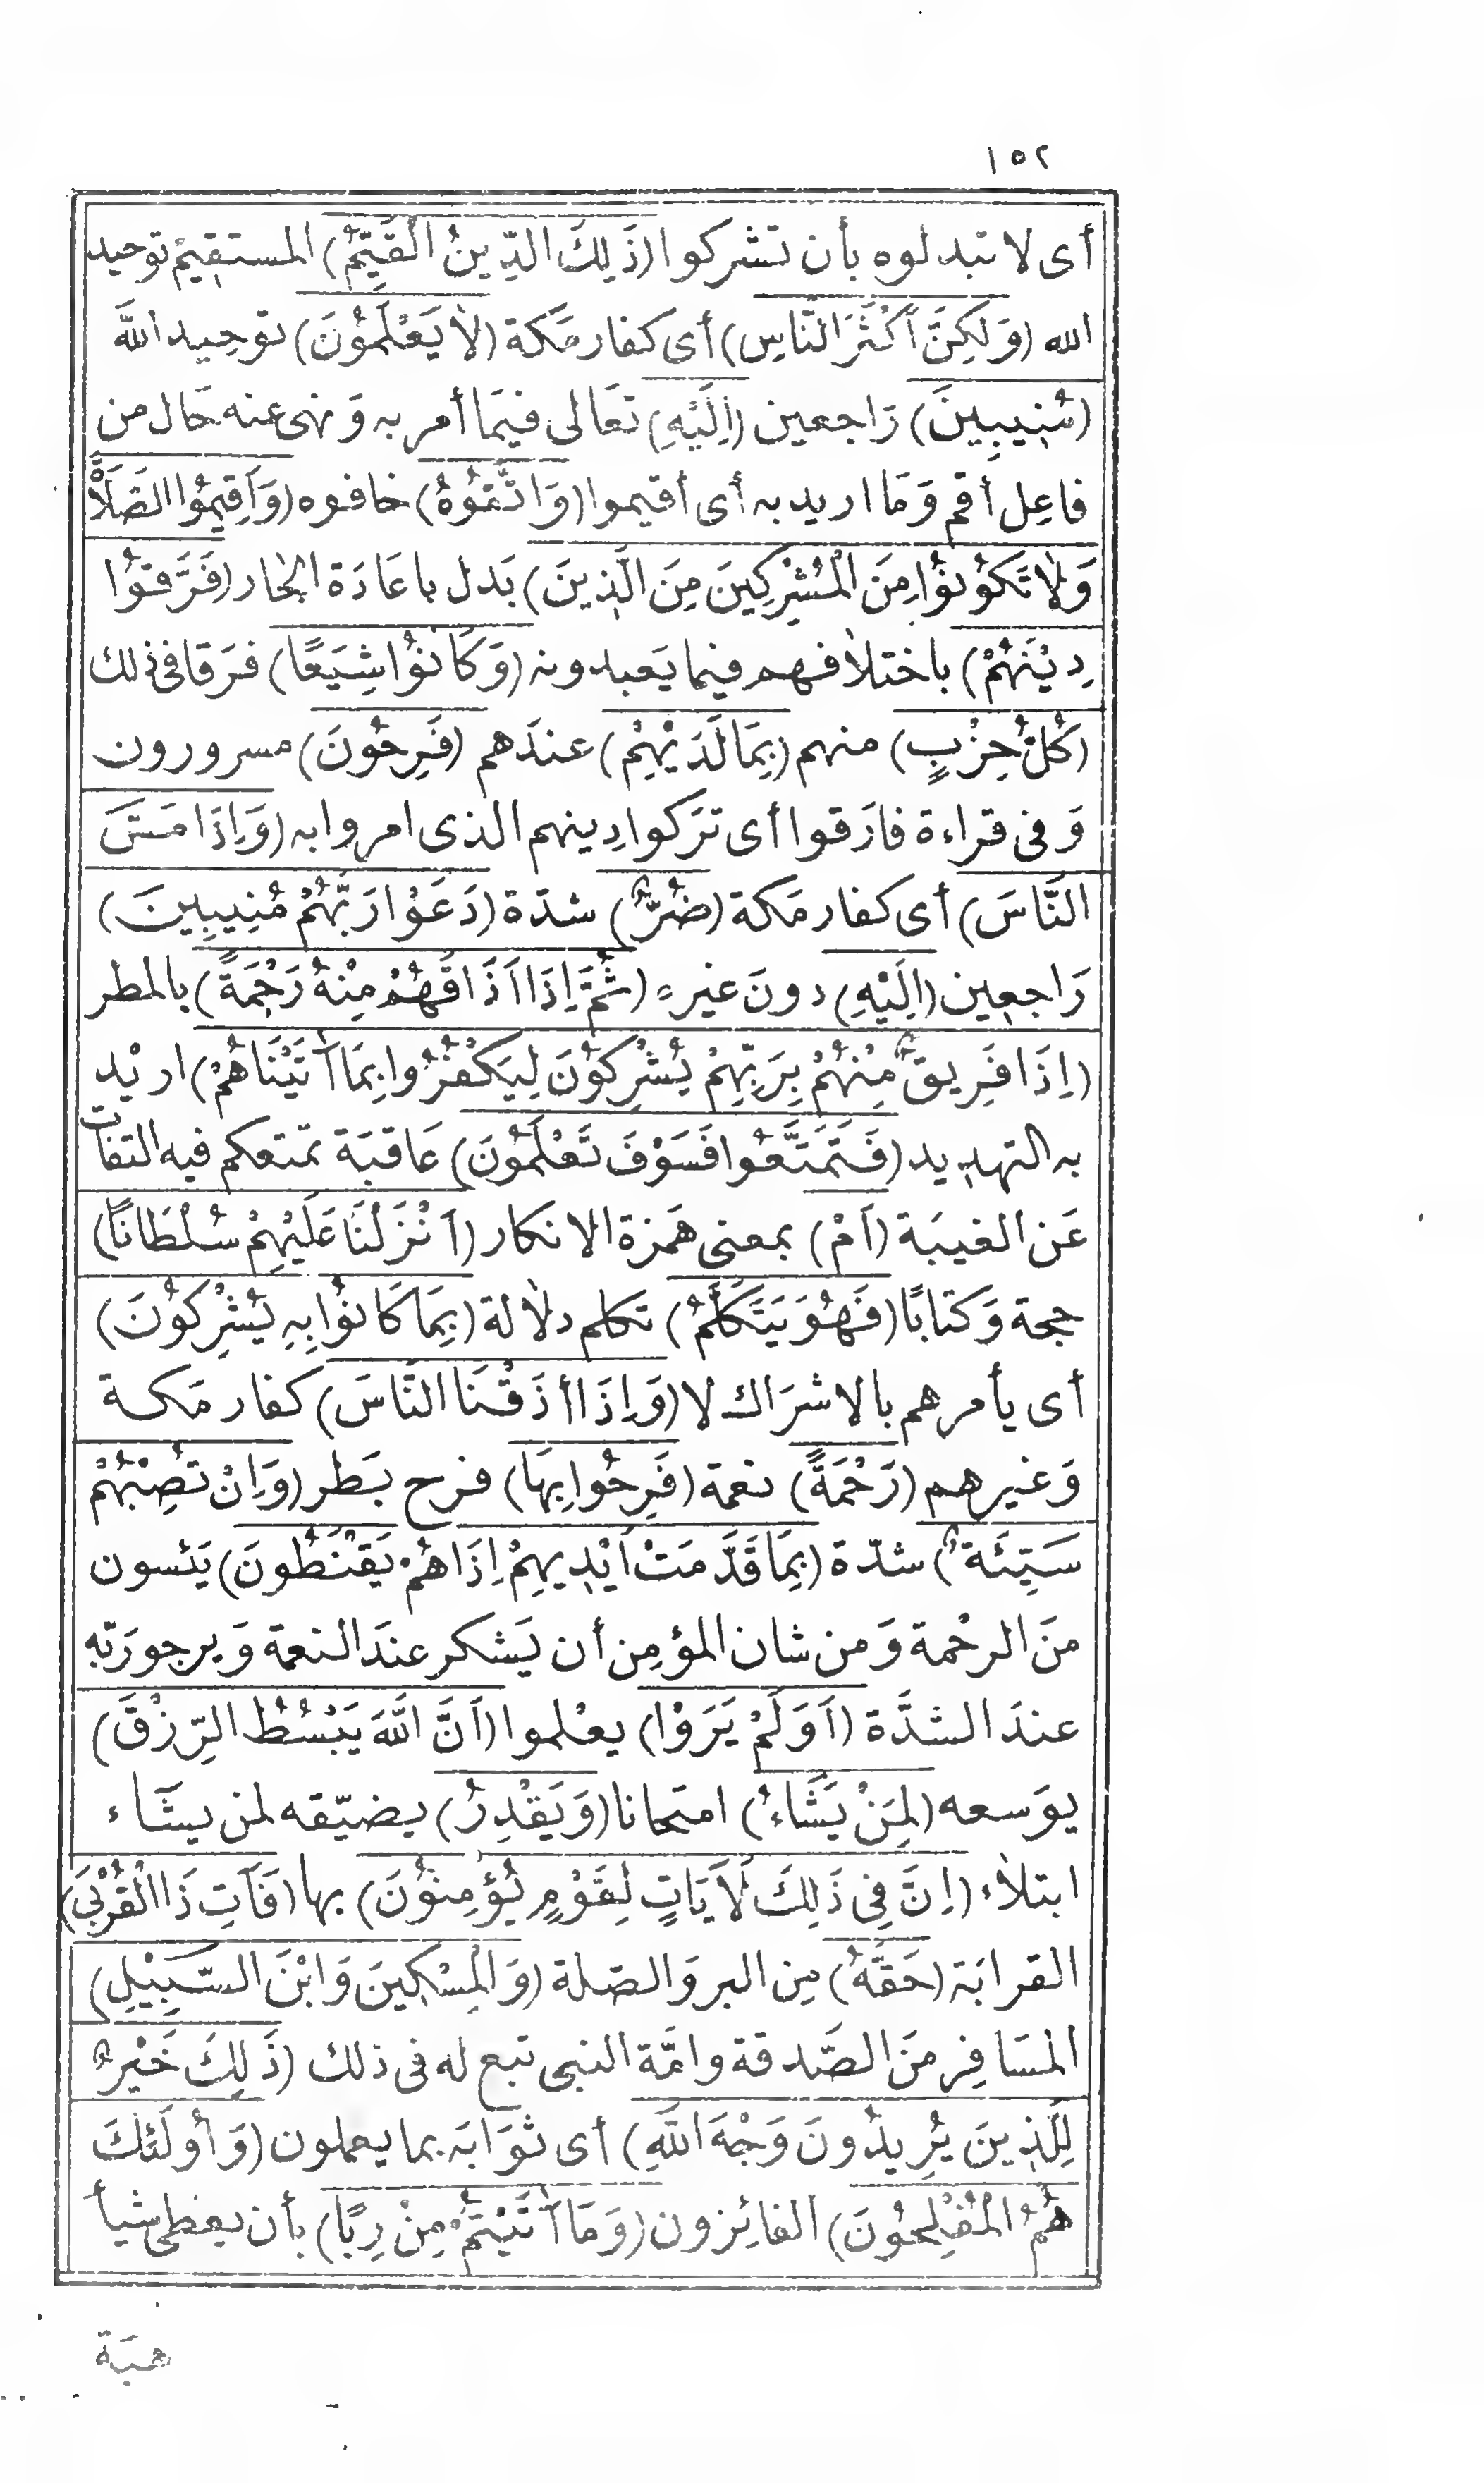 ١٥٢
أى لا تبدلوه بأن تشركوا (ذَلِكَ الدِّينُ الْقَيِّمُ) المستقيم توحيد
الله (وَلَكِنَّ أَكْثَرَ النَّاسِ) أى كفار مَكة (لاَ يَعْلَمُوْنَ) توحِيد اللهَ
(مُنِيبِينَ) رَاجعين (اِلَيْهِ) تعَالى فيمَا أمر به وَنهى عنه حَال من
فاعِل أقم وَمَا اريد به أى أقيموا (وَاتَّقُوْهُ) خافوه (وَاَقِيمُوا الصَّلاَةَ
وَلاَ تَكُوْنُوْا مِنَ الْمُشْرِكِينَ مِنَ الَّذِينَ) بَدل باعَادَة الجار (فَرَّقُوْا
دِيْنَهُمْ) باختلاَفهم فيما يَعبدونه (وَكَانُوْا شِيَعًا) فرَقا فى ذلك
(كُلُّ حِزْبٍ) منهم (بِمَا لَدَيْهِمْ) عندَهم (فَرِحُوْنَ) مسرورون
وَفى قراءة فارَقوا أى ترَكوا دِينهم الذى امروا به (وَاِذَا مَسَّ
النَّاسَ) أى كفار مَكة (ضُرٌّ) شدّة (دَعَوْا رَبَّهُمْ مُنِيبِينَ)
رَاجعِين (اِلَيْهِ) دونَ غيره (ثُمَّ اِذَا اَذَاقَهُمْ مِنْهُ رَحْمَةً) بالمطر
(اِذَا فَرِيقٌ مِنْهُمْ بِرَبِّهِمْ يُشْرِكُوْنَ لِيَكْفُرُوا بِمَا آتَيْنَاهُمْ) اريْد
به التهديد (فَتَمَتَّعُوا فَسَوْفَ تَعْلَمُوْنَ) عَاقبَة تمتعكم فيه التفات
عَن الغيبَة (اَمْ) بمعنى هَمزة الانكار (اَنْزَلْنَا عَلَيْهِمْ سُلْطَانًا)
حجة وَكتابًا (فَهُوَ يَتَكَلَّمُ) تكلم دلاَلة (بِمَا كَانُوْا بِهِ يُشْرِكُوْنَ)
أى يأمرهم بالاشرَاك لا (وَاِذَا أَذَقْنَا النَّاسَ) كفار مَكة
وَغيرهم (رَحْمَةً) نعمة (فَرِحُوا بِهَا) فرح بَطر (وَاِنْ تُصِبْهُمْ
سَيِّئَةٌ) شدّة (بِمَا قَدَّمَتْ اَيْدِيهِمْ اِذَا هُمْ يَقْنَطُونَ) يَئسون
منَ الرحْمة وَمن شان المؤمِن أن يَشكر عندَ النعمة وَيرجو رَبّه
عندَ الشدَّة (اَوَلَمْ يَرَوْا) يعْلموا (اَنَّ اللهَ يَبْسُطُ الرِّزْقَ)
يوَسعه (لِمَنْ يَشَاءُ) امتحانا (وَيَقْدِرُ) يضيّقه لمن يشَاء
ابتلاَء (اِنَّ فِى ذَلِكَ لَآيَاتٍ لِقَوْمٍ يُؤْمِنُوْنَ) بها (فَآتِ ذَا الْقُرْبَى)
القرابَة (حَقَّهُ) مِن البر وَالصّلة (وَالْمِسْكِينَ وَابْنَ السَّبِيْلِ)
المسَافِر منَ الصَّدقة وامَّة النبى تبع له فى ذلك (ذَلِكَ خَيْرٌ
لِلَّذِينَ يُرِيدُونَ وَجْهَ اللهِ) أى ثوَابَه بما يعملون (وَأُولَئِكَ
هُمُ الْمُفْلِحُوْنَ) الفائِزون (وَمَا آتَيْتُمْ مِنْ رِبًا) بأن يعْطى شيأ
هبَة